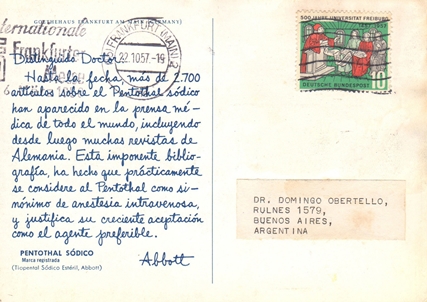 GOETHEHAUS FRANKFURT AM MAIN (GERMANY)
Internationale
Frankfurter
FRANKFURT (MAIN) 2
22.10.57.-19
500 JAHRE UNIVERSITÄT FREIBURG
10
DEUTSCHE BUNDESPOST
Distinguido Doctor:
Hasta la fecha, más de 2.700
artículos sobre el Pentothal sódico
han aparecido en la prensa mé-
dica de todo el mundo, incluyendo
desde luego muchas revistas de
Alemania. Esta imponente biblio-
grafía, ha hecho que prácticamente
se considere al Pentothal como si-
nónimo de anestesia intravenosa,
y justifica su creciente aceptación
como el agente preferible.
Abbott
PENTOTHAL SÓDICO
Marca registrada
(Tiopental Sódico Estéril, Abbott)
DR. DOMINGO OBERTELLO,
RULNES 1579,
BUENOS AIRES,
ARGENTINA